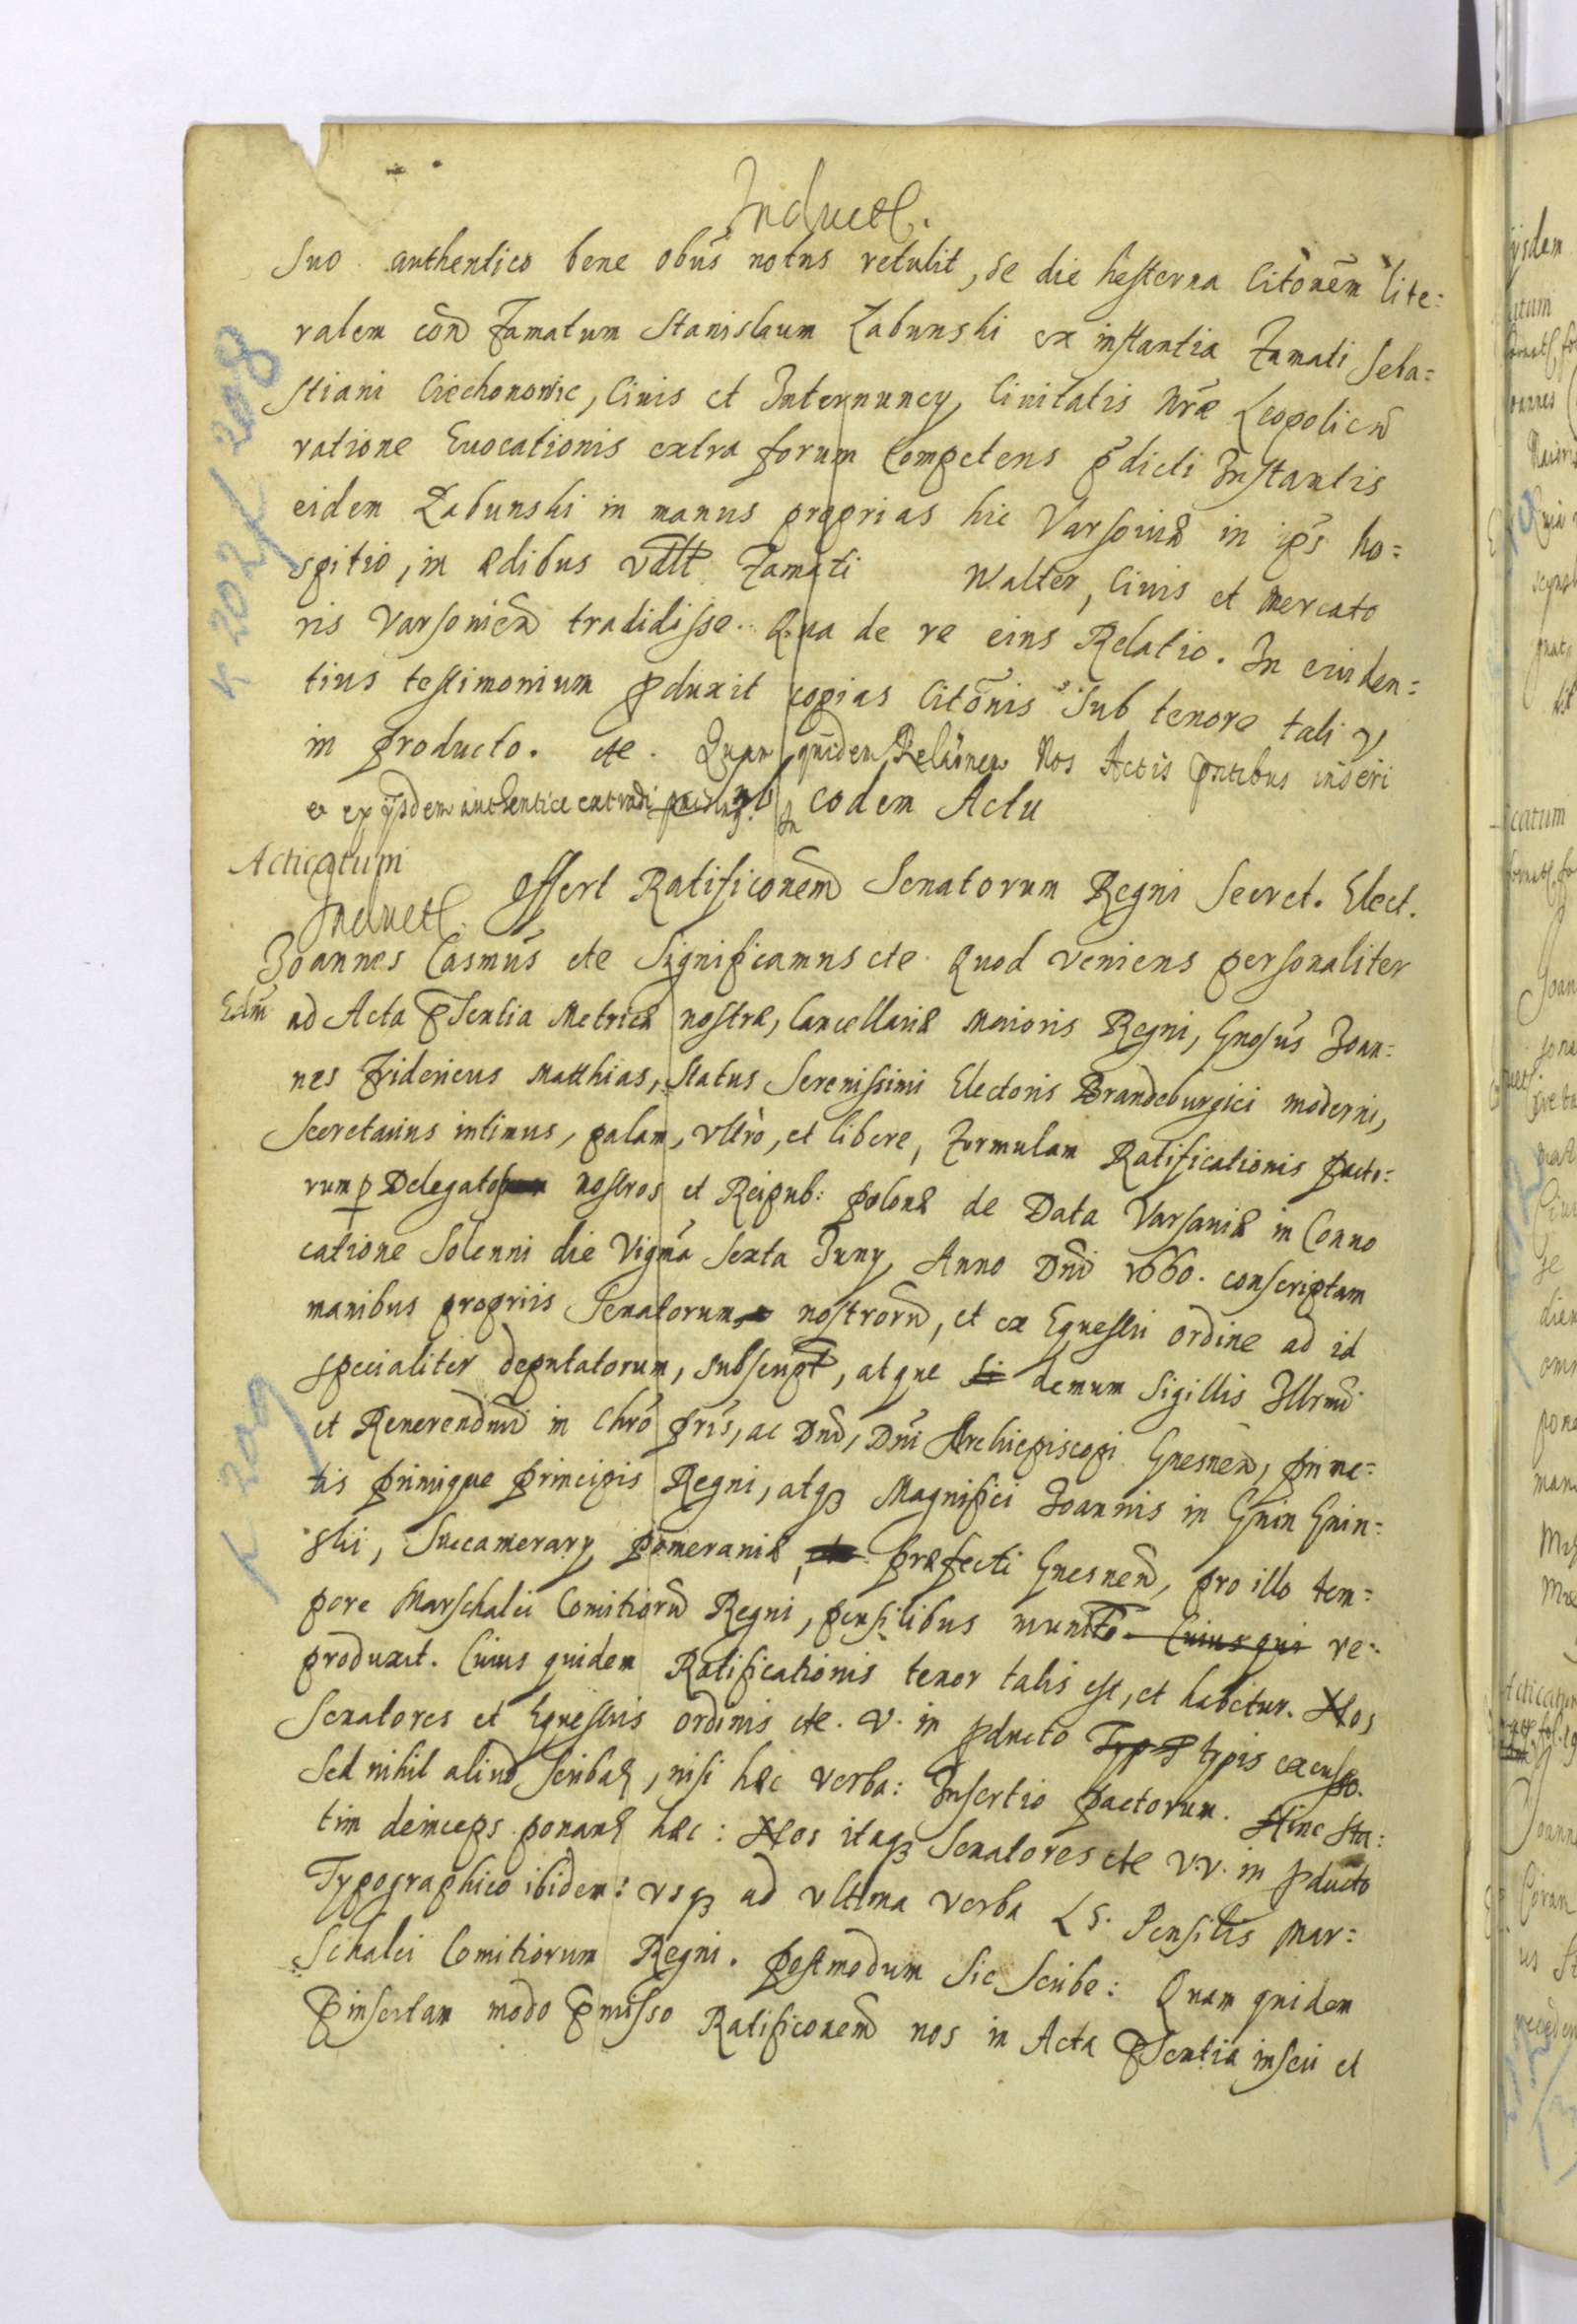 Induct.
suo authentico bene obūs notus retulit, se die hesterna Citōnem lite=
ralem cōn Famatum Stanislaum Zabunski ex instantia Famati Seba=
stiani Ciechonowic, Civis et Internuncy, Civitatis Nrae Leopolien
ratione Evocationis extra forum Competens p̄dicti Instantis
eidem Zabunski in manus proprias hic Varsoviæ in ips ho=
spitio, in ædibus vdlt Famati Walter, Civis et Mercato
ris Varsovien tradidisse. Qua de re eius Relatio. In eviden=
tius testimonium pduxit copias Citōnis sub tenore tali V
in Producto. etc. Quam quidem Relaōnem Nos Actis pntibus inseri
et ex ijsdem authentice extradi In Eodem Actu
Acticatum
Induct. Offert Ratificonem Senatorum Regni Secret. Elect.
Joannes Casimūs etc Significamus etc Quod veniens personaliter
ad Acta p̄sentia Metricæ nostræ, Cancellariæ Maioris Regni, Gnosūs Joan=
nes Fridericus Matthias, Status Serenissimi Electoris Brandeburgici moderni,
Secretarius intimus, palam, vltrò, et libere, Formulam Ratificationis Pacto=
rum p Delegatos nostros et Reipub: Polonæ de Data Varsaviæ in Convo
catione Solenni die Vigmā Sexta Juny Anno Dni 1660. conscriptam
manibus propriis Senatorum nostrorū, et ex Equestri ordine ad id
specialiter deputatorum, subscript, atque demum Sigillis Illrmi
et Reverendmi in Chrō Pris, ac Dnī, Dnī Archiepiscopi Gnesnen, Prima=
tis Primique Principis Regni, atqz Magnifici Joannis in Gnin Gnin=
ski, Succamerary Pomeraniæ, Præfecti Gnesnen, pro illo tem=
pore Marschalci Comitiorū Regni, pensilibus munit Cuius qui re=
produxit. Cuius quidem Ratificationis tenor talis est, et habetur. Nos
Senatores et Equestris ordinis etc. V. in pducto typis excuso.
Sed nihil aliud scribas, nisi hæc verba: Insertio Pactorum. Hinc sta=
tim deinceps ponant hæc: Nos itaqz Senatores etc V.V. in pducto
Typographico ibidem: vsqz ad vltima verba LS. Pensilis Mar=
schalci Comitiorum Regni. Postmodum Sic scribe: Quam quidem
p̄insertam modo p̄misso Ratificonem nos in Acta p̄sentia inseri et